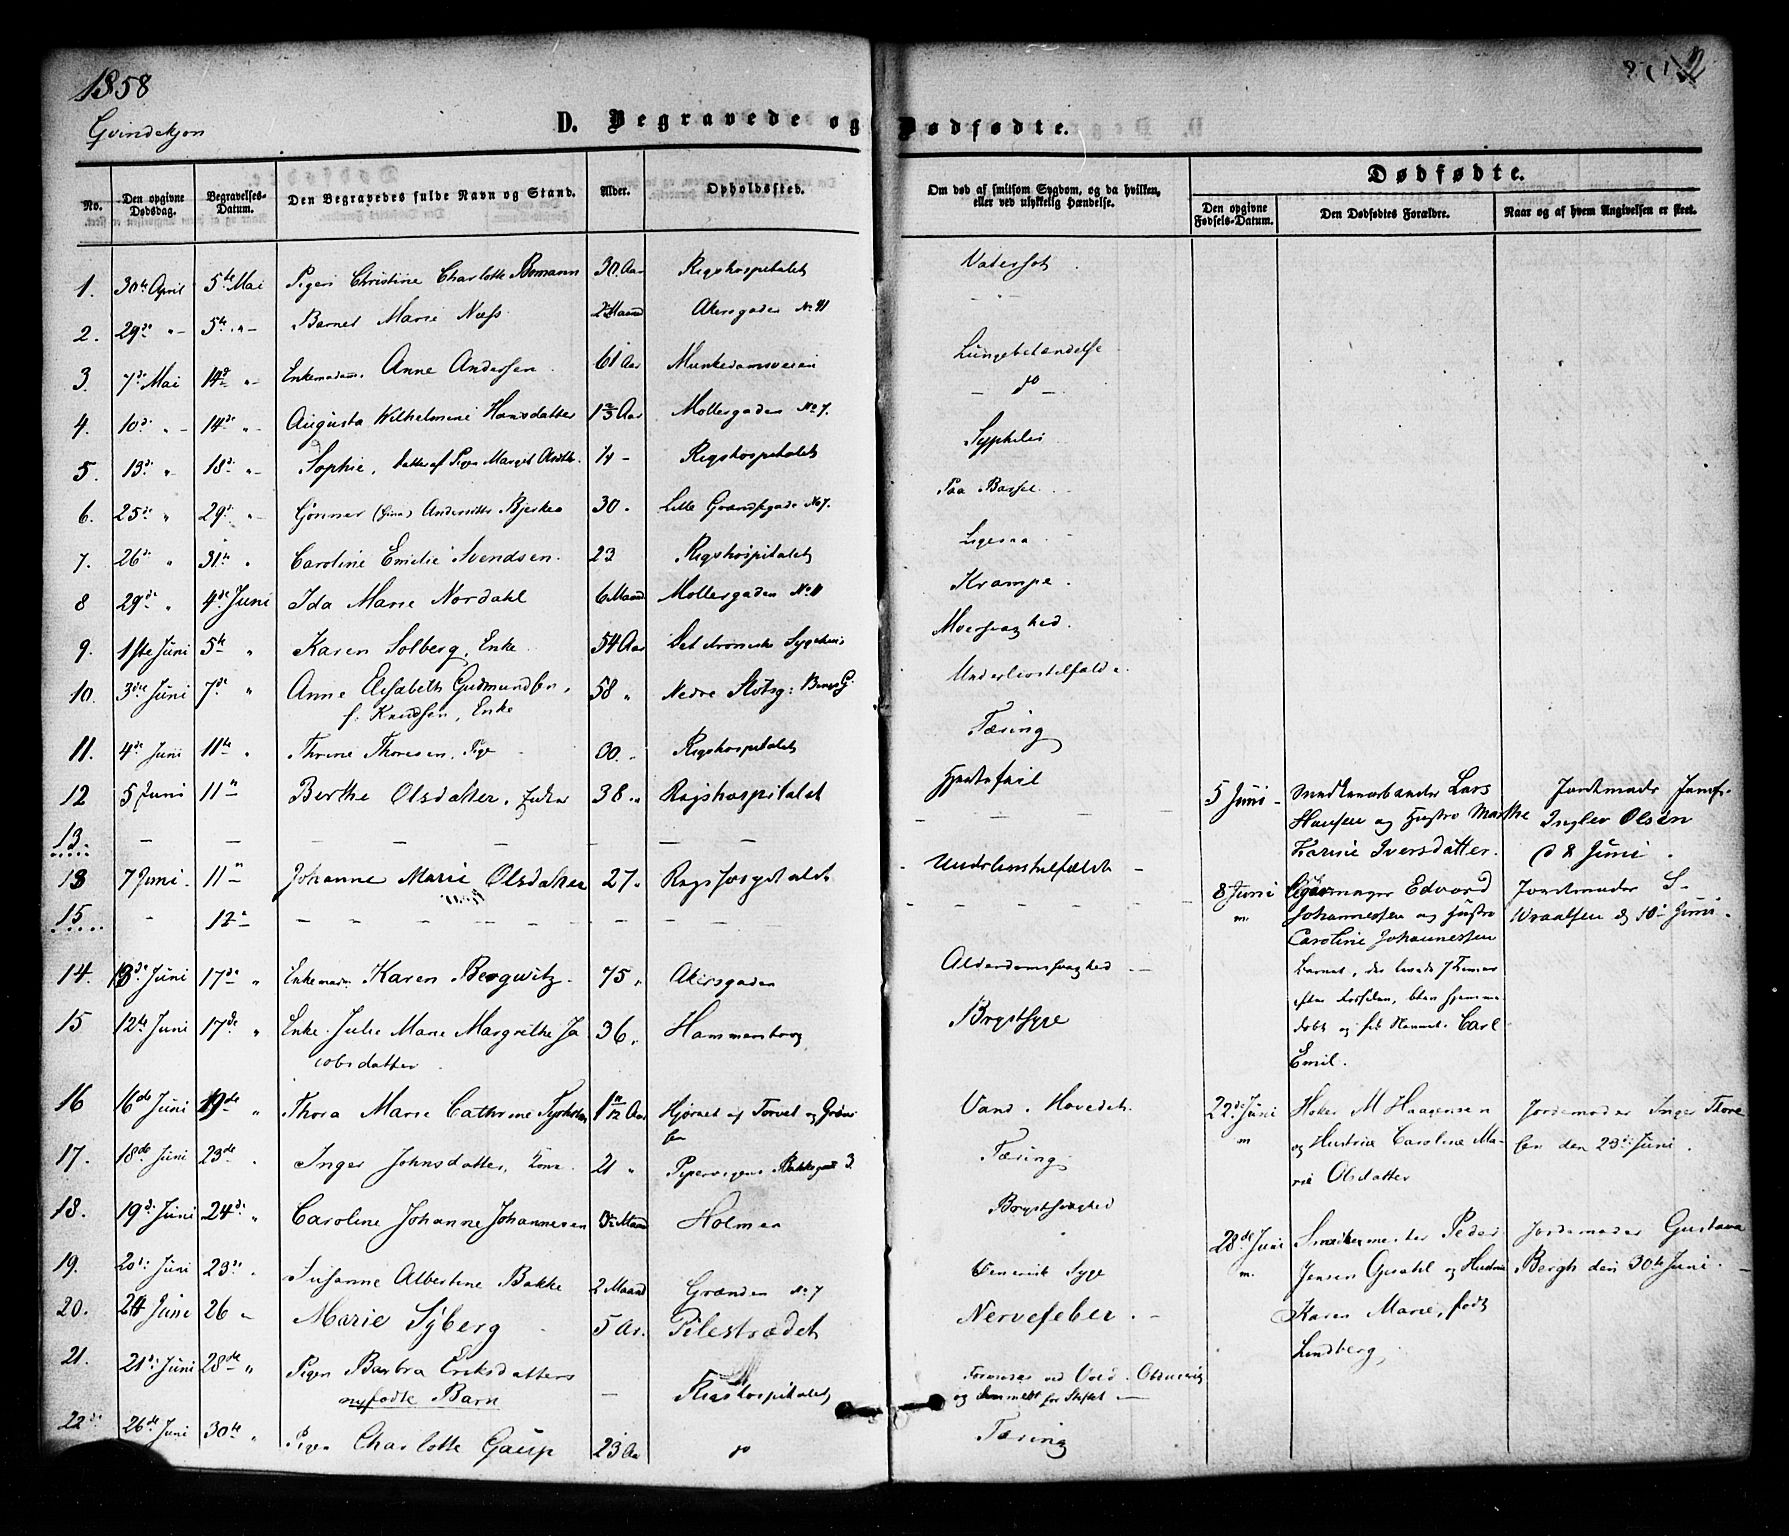 1858
Qvindekjøn
D. Begravede og Dødfødte.
No. Den opgivne Dødsdag. Begravelses-Datum. Den Begravedes fulde Navn og Stand. Alder. Opholdssted. Om død af smitsom Sygdom, og da hvilken, eller ved ulykkelig Hændelse.
Dødfødte.
Den opgivne Fødsels-Datum. Den Dødfødtes Forældre. Naar og af hvem Angivelsen er skeet.
1. 30te April 5te Mai Pigen Christine Charlotte Bomann 30 Aar Rigshospitalet Vatersot
2. 29de " 5te " Barnet Marie Næss Maaned Akersgaden No. 41
3. 7de Mai 14de " Enkemadame Anne Andersen 61 Aar Munkedamsveien Lungebetændelse
4. 10de " 14de " Augusta Wilhelmine Hansdatter 1 2/3 Aar Møllergaden No 7. — do —
5. 13de " 18de " Sophie, Datter af Pigen Margit Olsdtr. 14 - Rigshospitalet Syphilis
6. 25de " 29de " Gjønner (Gina) Andersdtr Bjerke 30 " Lille Grændsegade No 7. Paa Barsel
7. 26de " 31te " Caroline Emilie Svendsen 23 Rigshospitalet Ligesaa
8 29de " 4de Juni Ida Marie Nordahl 6 Maaned Møllergaden No 11 Krampe
9. 1ste Juni 5te " Karen Solberg, Enke 54 Aar Det kroniske Sygehuus
10. 3die Juni 7de " Anne Elisabeth Gudmundsen, 58 " Nedre Slotsg: Underlivstilfælde
f. Knudsen, Enke
11. 4de Juni 11te " Thrine Thoresen, Pige 30 " Rigshospitalet Tæring
12 5 Juni 11te Berthe Olsdatter, 38 " Rigshospitalet Hjertefeil
13. — — — — — 5 Juni Lars
Hansen og Hustro Marthe
Karine Iversdatter. Jordmoder Jomfr. Inglev Olsen d 8 Juni
13 7 Juni 11te Johanne Marie Olsdatter 27 " Rigshospitalet Underlivstilfælde
15. - 12te — — — — 8 Juni m. Edvard
Johannessen og Hustro
Caroline Johannessen
Barnet, der levede 7 Timer
efter Fødselen, blev hjemme
døbt og fik Navnet Carl
Emil. Jordmoder S. Wraalsen d 10de Juni.
14. 13de Juni 17de " Enkemadm Karen Bergwitz 75 " Akersgaden Alderdomssvaghed
15 12te Juni 17de " Enke Julie Marie Margrethe Ja- 36 " Hammersborg Brystsyge
cobsdatter
16 16de Juni 19de " Thora Marie Cathrine 1 11/12 Aar Hjørnet af Torvet og Grænd-
sen Vand i Hovedet 22de Juni m Høker M Haagensen
og Hustrue Caroline Ma-
rie Olsdatter Jordemoder Inger Thore-
sen den 23de Juni.
17. 18de Juni 23de " Inger Johnsdatter, Kone 21 " Pipervigens Bakkegade 3. Tæring
18. 19de Juni 24de " Caroline Johanne Johannesen Maaned Holmen Brystsvaghed
19. 20de Juni 23de " Susanne Albertine Bakke 2 Maaned Grændsen No 7 Venerisk Syge 28de Juni m. Snedkermester Peder
Jensen og Hustrue
Karen Marie, født
Lundberg, Jordemoder Gustava
Bergh den 30te Juni.
20. 24 Juni 26 " Marie Syberg 5 Aar. Pilestrædet Nervefeber
21. 21de Juni 28de " Pigen Barbra Eriksdatters
nyfødte Barn — Rigshospitalet ved Vold
og anmeldt for Skiftet
22de 26de Juni 30te " Pigen Charlotte Gaup 23 Aar do Tæring